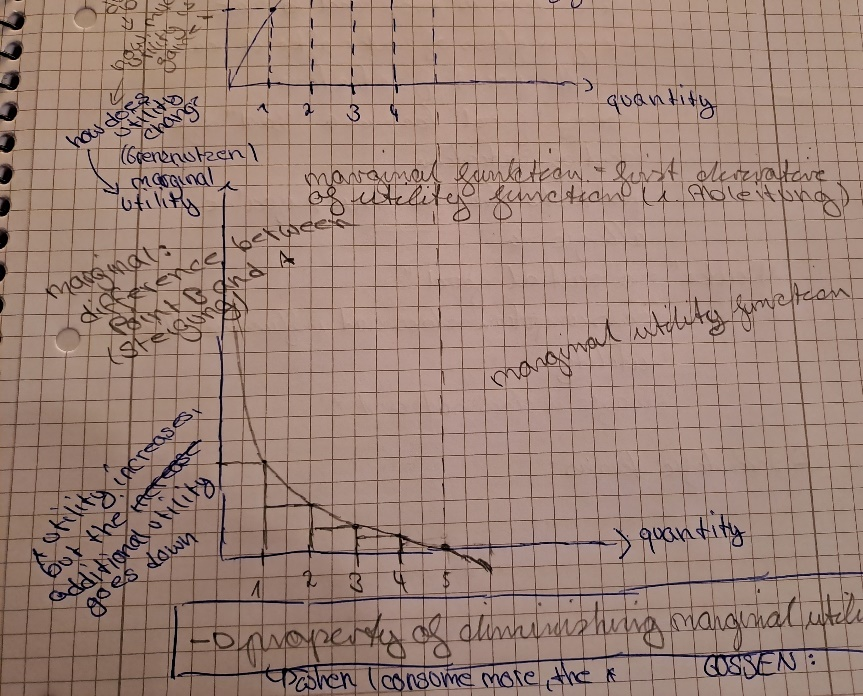 1 2 3 4
quantity
how does
utility
change
(Grenznutzen)
marginal
utility
marginal funktion = first derivative
of utility function (1. Ableitung)
marginal:
difference between
point B and A
(Steigung)
marginal utility function
* utility increases,
but the increase
additional utility
goes down
quantity
1 2 3 4 5
property of diminishing marginal utili
when I consome more, the *
GOSSEN: